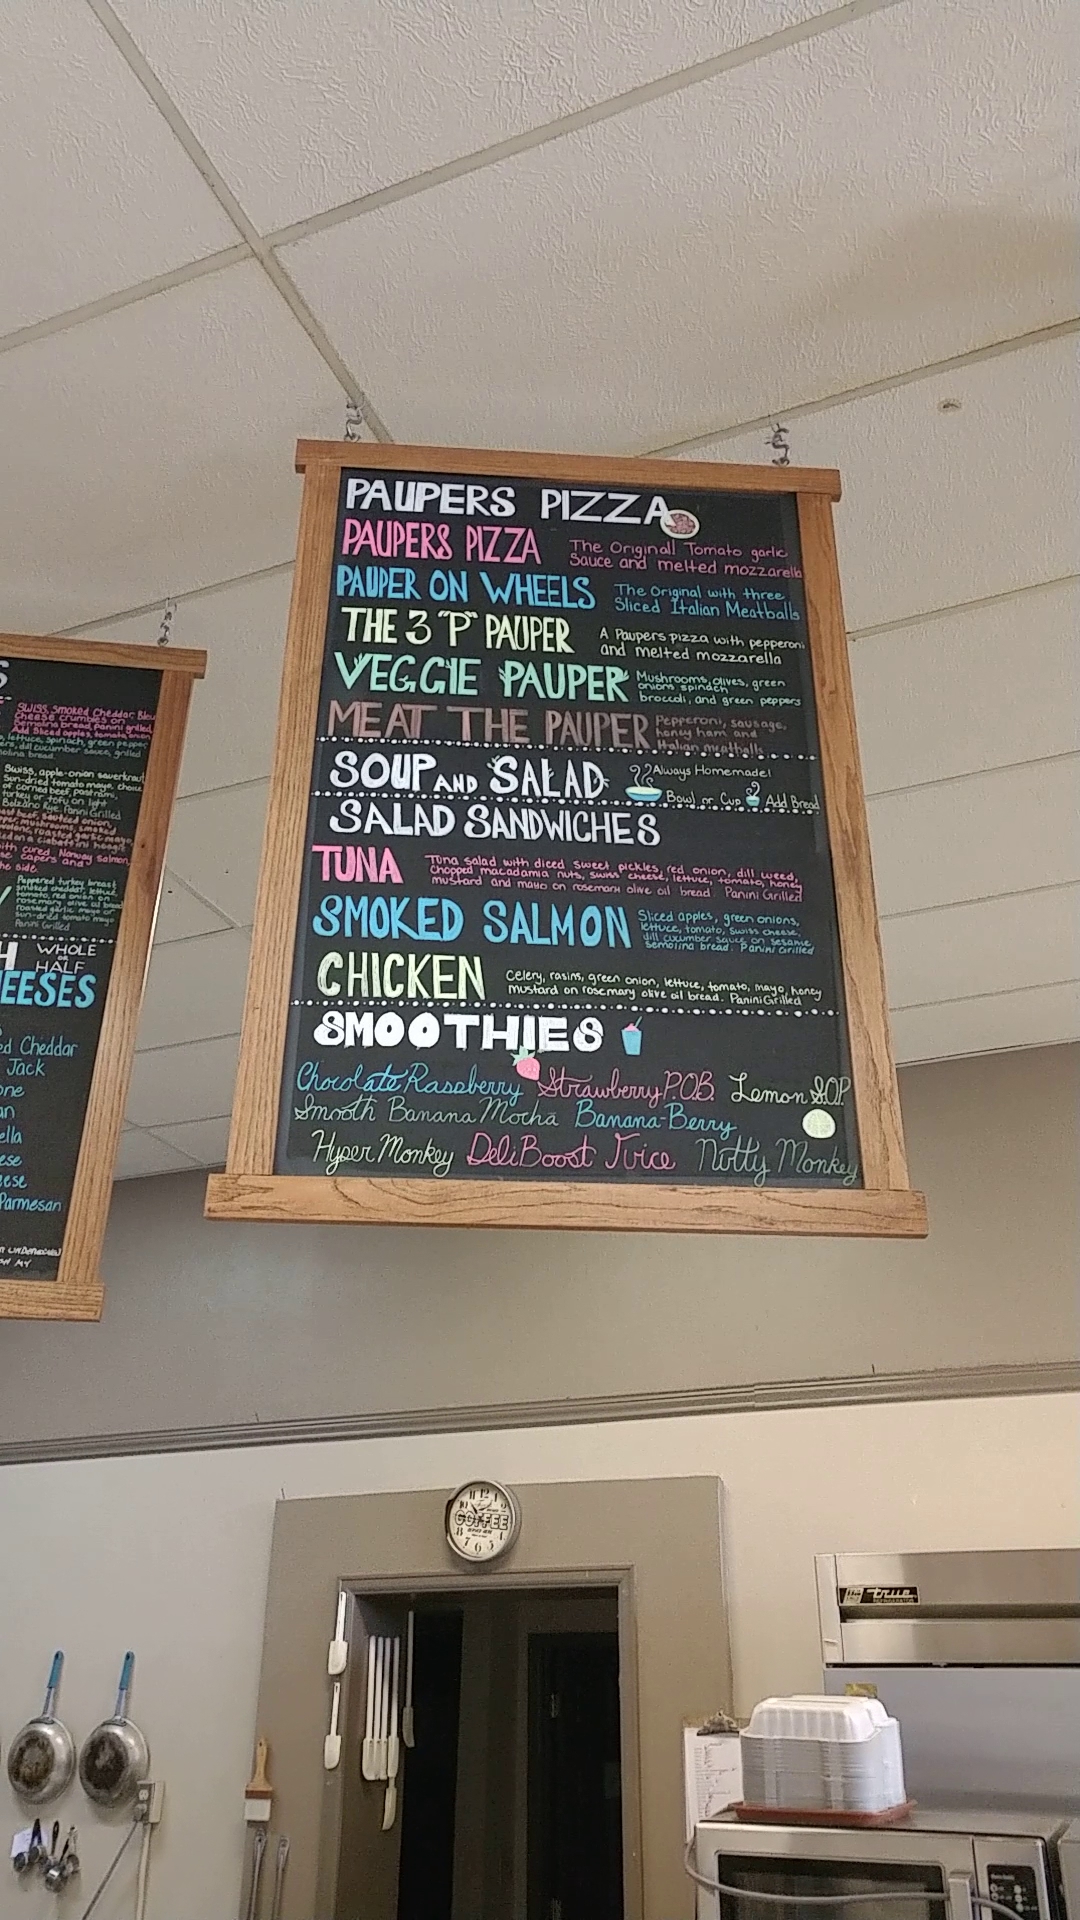 PAUPERS PIZZA
PAUPERS PIZZA
The Original! Tomato garlic
Sauce and melted mozzarella
PAUPER ON WHEELS
The Original with three
Sliced Italian Meatballs
THE 3 "P" PAUPER
A Paupers pizza with pepperoni
and melted mozzarella
VEGGIE PAUPER
Mushrooms, olives, green
onions, spinach
broccoli, and green peppers
MEAT THE PAUPER
Pepperoni, sausage,
honey ham and
Italian meatballs
SOUP AND SALAD
Always Homemade!
Bowl or Cup Add Bread
SALAD SANDWICHES
TUNA
Tuna salad with diced sweet pickles, red onion, dill weed,
chopped macadamia nuts, swiss cheese, lettuce, tomato, honey
mustard and mayo on rosemary olive oil bread. Panini Grilled
SMOKED SALMON
Sliced apples, green onions,
lettuce, tomato, swiss cheese,
dill cucumber sauce on sesame
semolina bread. Panini Grilled
CHICKEN
Celery, rasins, green onion, lettuce, tomato, mayo, honey
mustard on rosemary olive oil bread. Panini Grilled
SMOOTHIES
Chocolate Raspberry Strawberry P.O.B. Lemon S.O.P.
Smooth Banana Mocha Banana-Berry
Hyper Monkey Deli Boost Juice Nutty Monkey
S
Swiss, Smoked Cheddar, Bleu
Cheese crumbles on
Semolina bread, Panini grilled,
Add Sliced apples, tomato, onion
lettuce, spinach, green pepper,
dill cucumber sauce, grilled
bread.
Swiss, apple-onion sauerkraut,
Sun-dried tomato mayo, choice
of corned beef, pastrami,
turkey or tofu on light
Bolzano Rye. Panini Grilled
beef, sauteed onion,
mushrooms, smoked
roasted garlic mayo,
on a ciabattini hoagie
with cured Norway Salmon,
capers and
side.
Peppered turkey breast
smoked cheddar, lettuce,
tomato, red onion on
rosemary olive oil bread
roasted garlic mayo or
sun-dried tomato mayo
Panini Grilled
H WHOLE
OR
HALF
EESES
ed Cheddar
Jack
one
an
ella
ese
eese
Parmesan
COFFEE
true
REFRIGERATOR